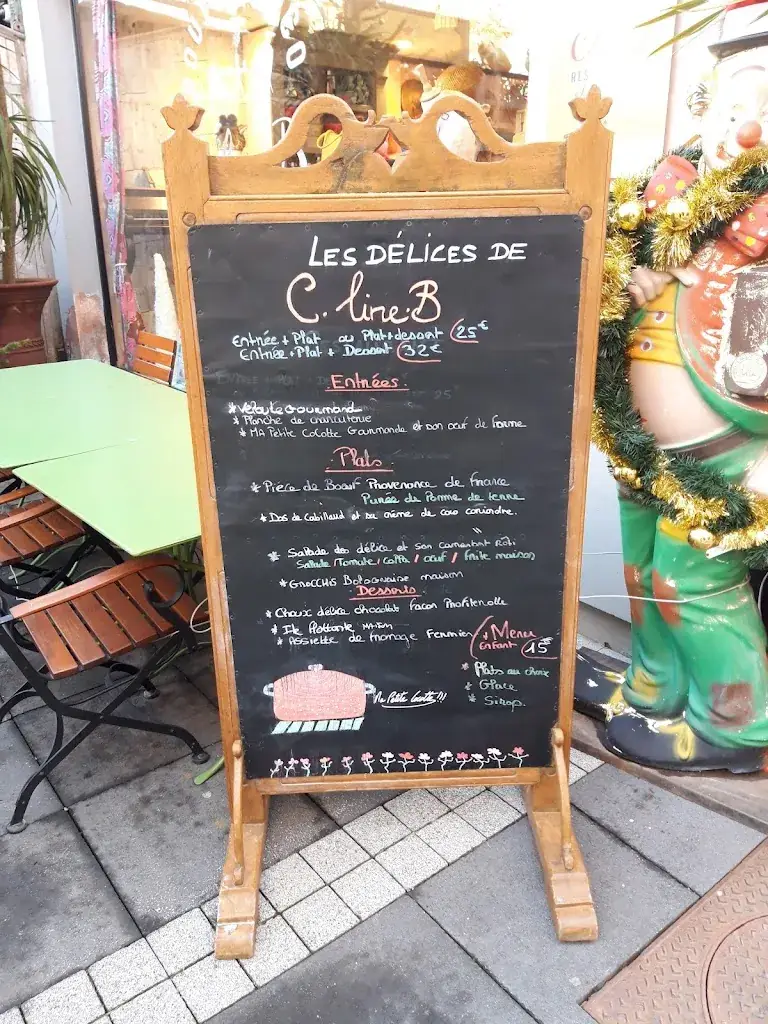 LES DÉLICES DE
C. line B
Entrée + Plat ou Plat + dessert 25€
Entrée + Plat + Dessert 32€
Entrées
* Velouté Gourmand
* Planche de charcuterie
* MA Petite Cocotte Gourmande et son oeuf de ferme
Plats
* Pièce de Boeuf Provenance de France
Purée de Pomme de terre
* Dos de Cabillaud et sa crème de coco coriandre.
* Salade des délice et son camembert Rôti
Salade / Tomate / / oeuf / frite maison
* GNOCCHIS Bolognaise maison
Desserts
* Choux délice chocolat Façon Profiterolle
* Ile flottante maison
* Assiette de fromage Fermier
Menu
Enfant 15€
* Plats au choix
* Glace
* Sirop.
Ma Petite Cocotte !!!
RES